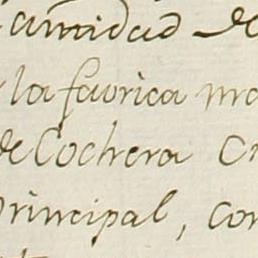 cantidad de
la favrica
de Cochera
principal, con